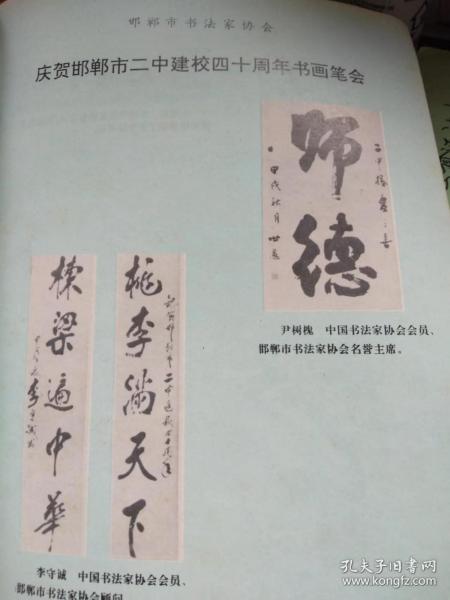 邯郸市书法家协会
庆贺邯郸市二中建校四十周年书画笔会
师德
甲戌秋月
尹树槐 中国书法家协会会员、
邯郸市书法家协会名誉主席。
桃李满天下
栋梁遍中华
李守诚 中国书法家协会会员、
邯郸市书法家协会顾问
孔夫子旧书网